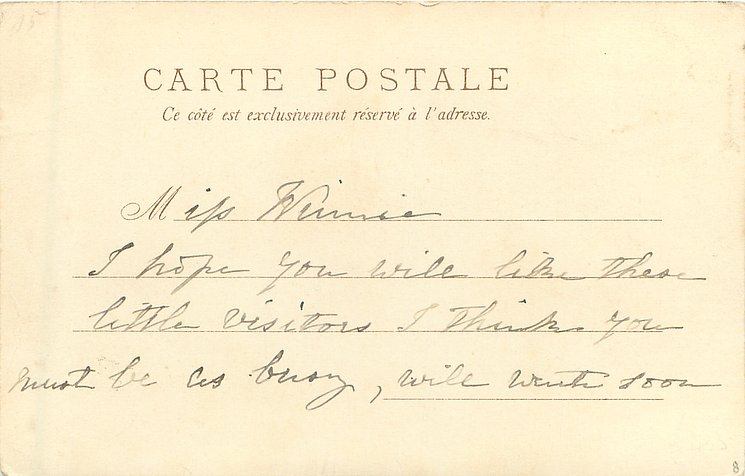 15
CARTE POSTALE
Ce côté est exclusivement réservé à l'adresse.
Miss Winnie
I hope you will like these
little visitors I think you
must be as busy, will write soon
8